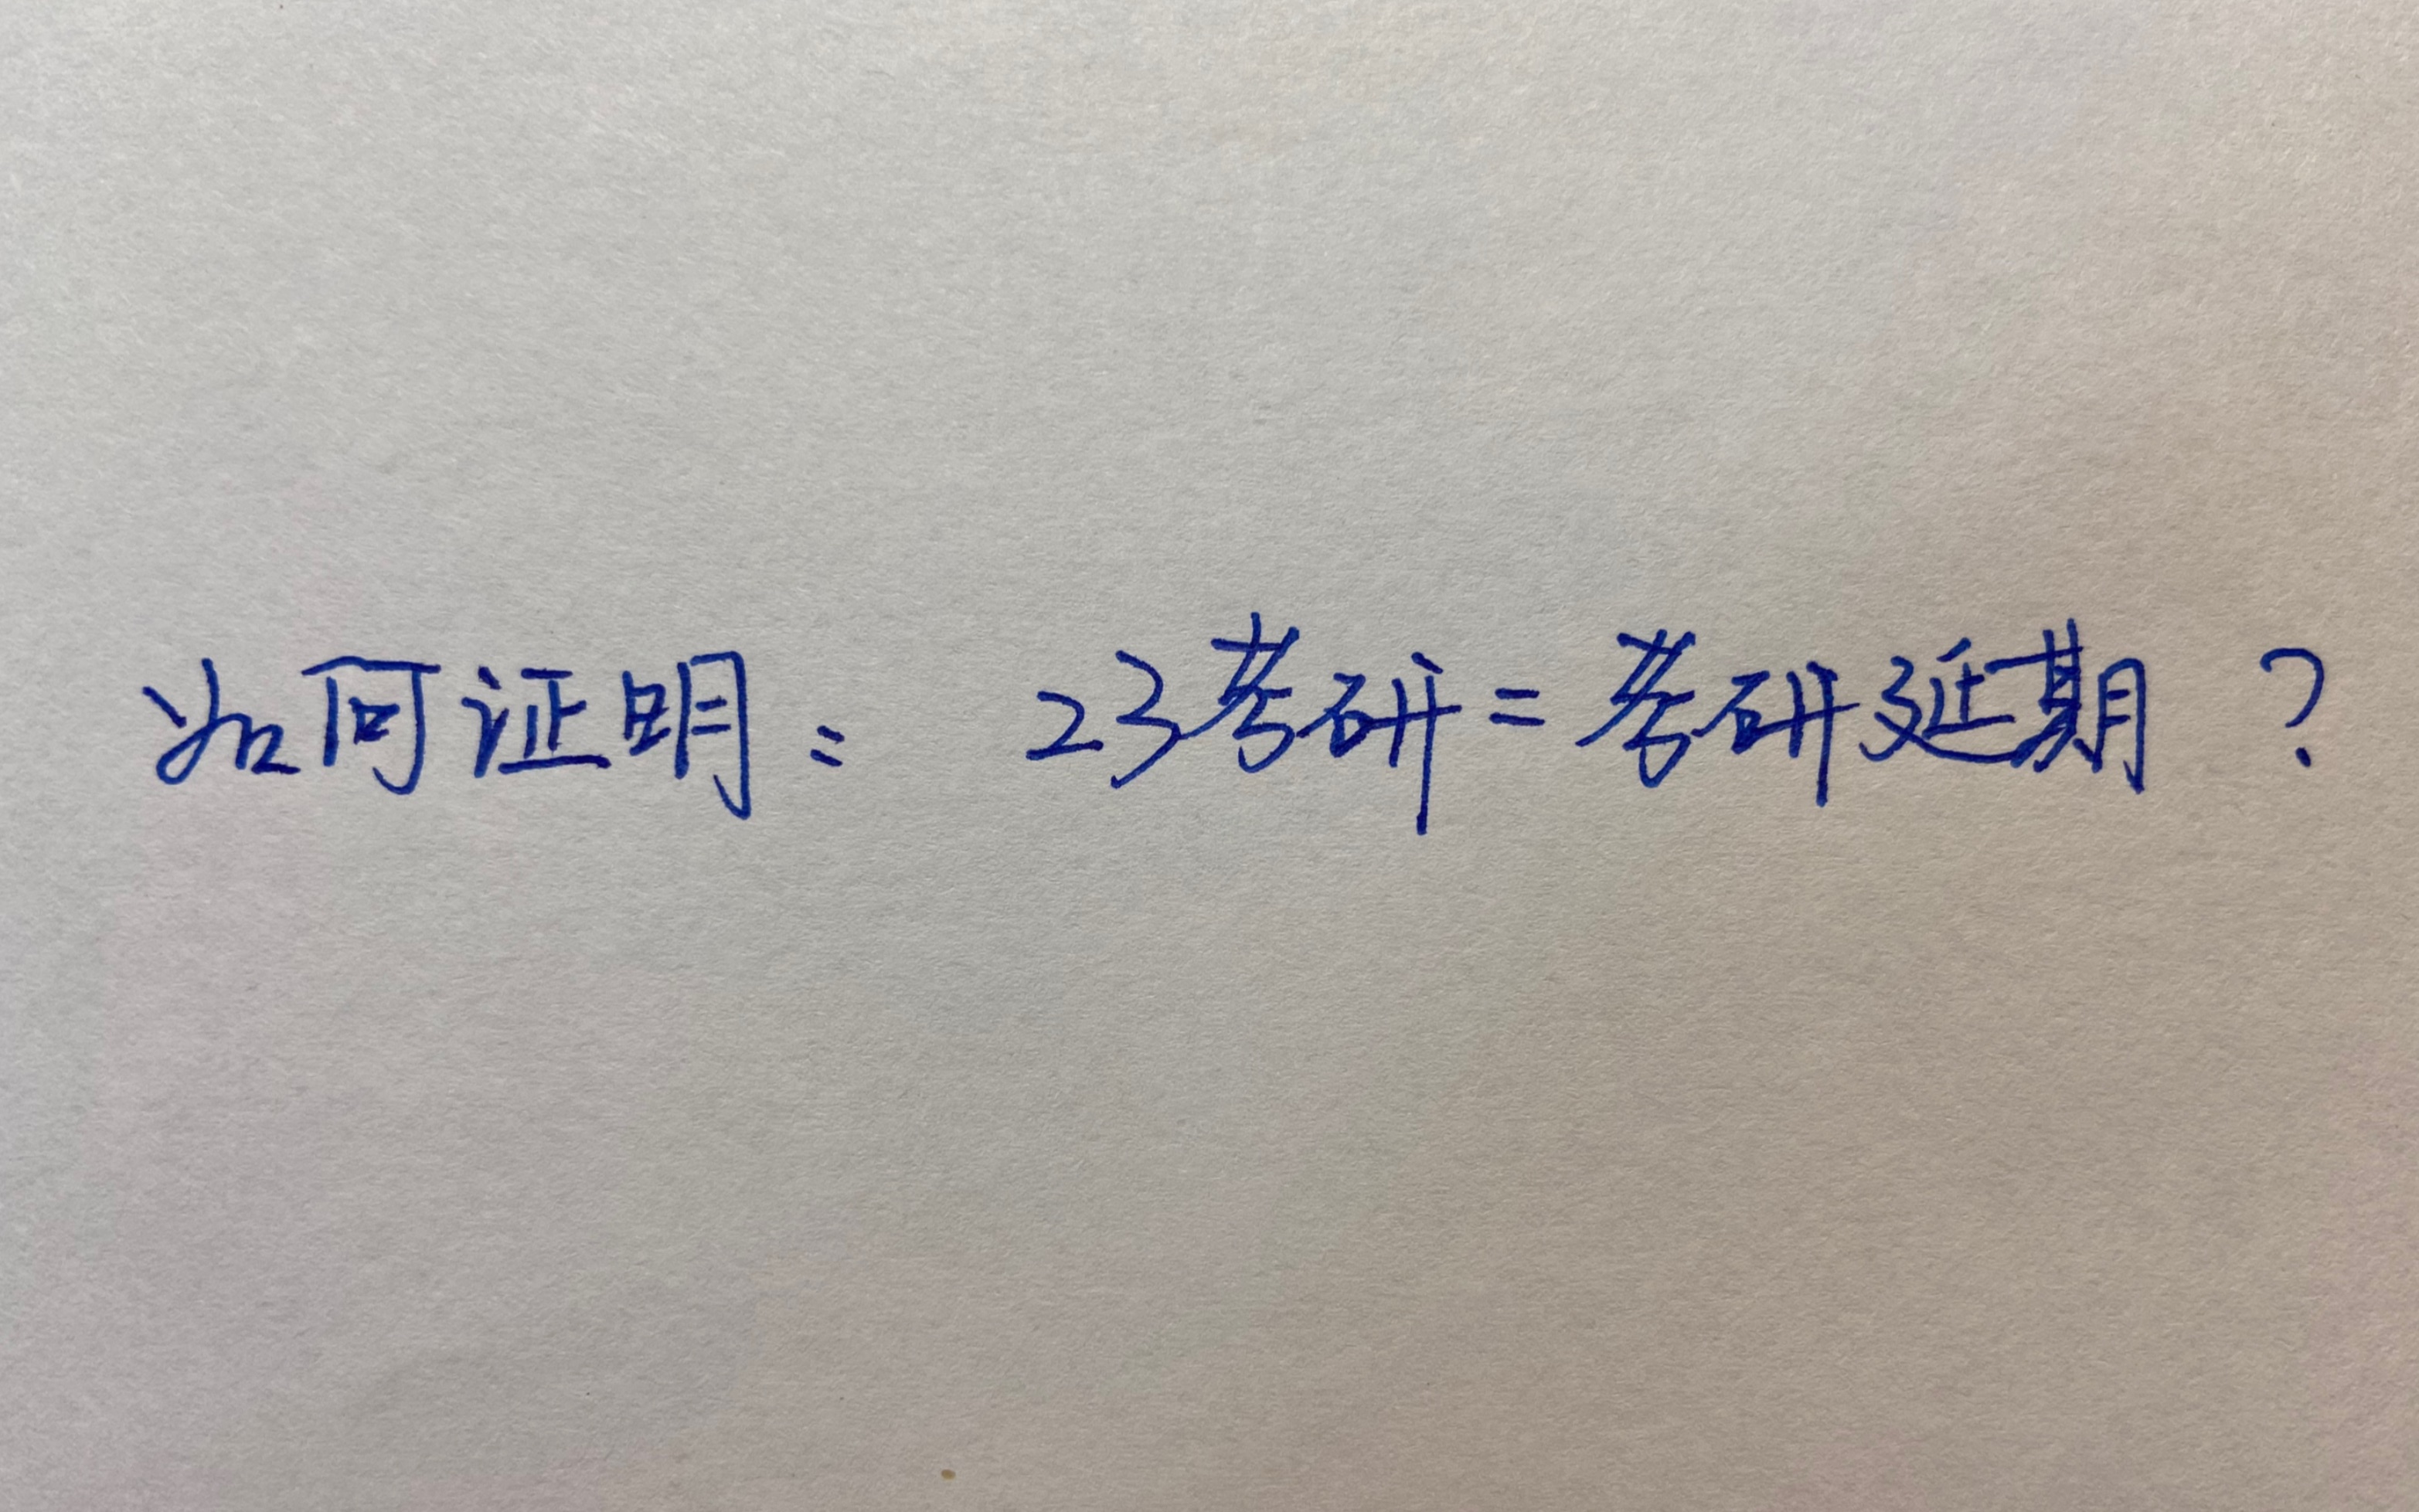 如何证明： 23考研=考研延期？